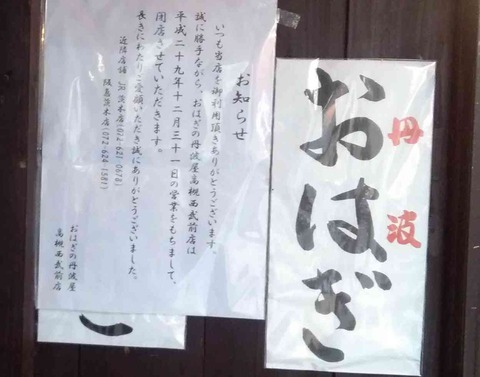 丹波
おはぎ
お知らせ
いつも当店を御利用頂きありがとうございます。
誠に勝手ながら、おはぎの丹波屋高槻西武前店は
平成二十九年十二月三十一日の営業をもちまして、
閉店させていただきます。
長きにわたりご愛顧いただき誠にありがとうございました。
近隣店舗 JR茨木店(072-621-0678)
阪急茨木店(072-624-1381)
おはぎの丹波屋
高槻西武前店